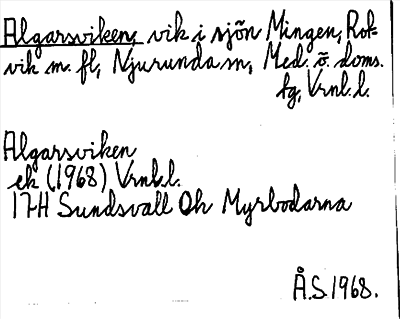 Algarsviken, vik i sjön Mingen, Rok-
vik m. fl, Njurunda sn, Med. ö. doms.
tg, Vrnl. l.
Algarsviken
ek (1968) Vrnl. l.
17H Sundsvall 0h Myrbodarna
Å.S. 1968.